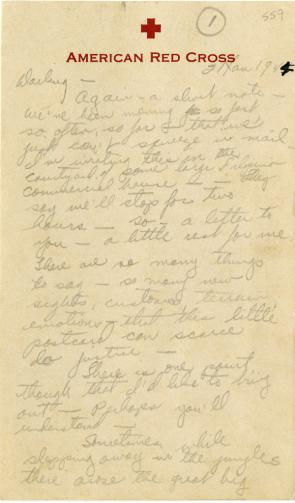 1
559
AMERICAN RED CROSS
31 Jan 194
Darling —
Again — a short note —
we've been moving so fast
so often, so far — that we
just can't squeeze in mail.
I'm writing this in the
courtyard of some large
commercial house — they
say we'll stop for two
hours — so — a letter to
you — a little rest for me.
There are so many things
to say — so many new
sights, customs, terrain
emotions, that this little
postcard can scarce
do justice —
There is one point
though that I'd like to bring
out — Perhaps you'll
understand —
Sometimes while
slogging away in the jungles
there arose the great big